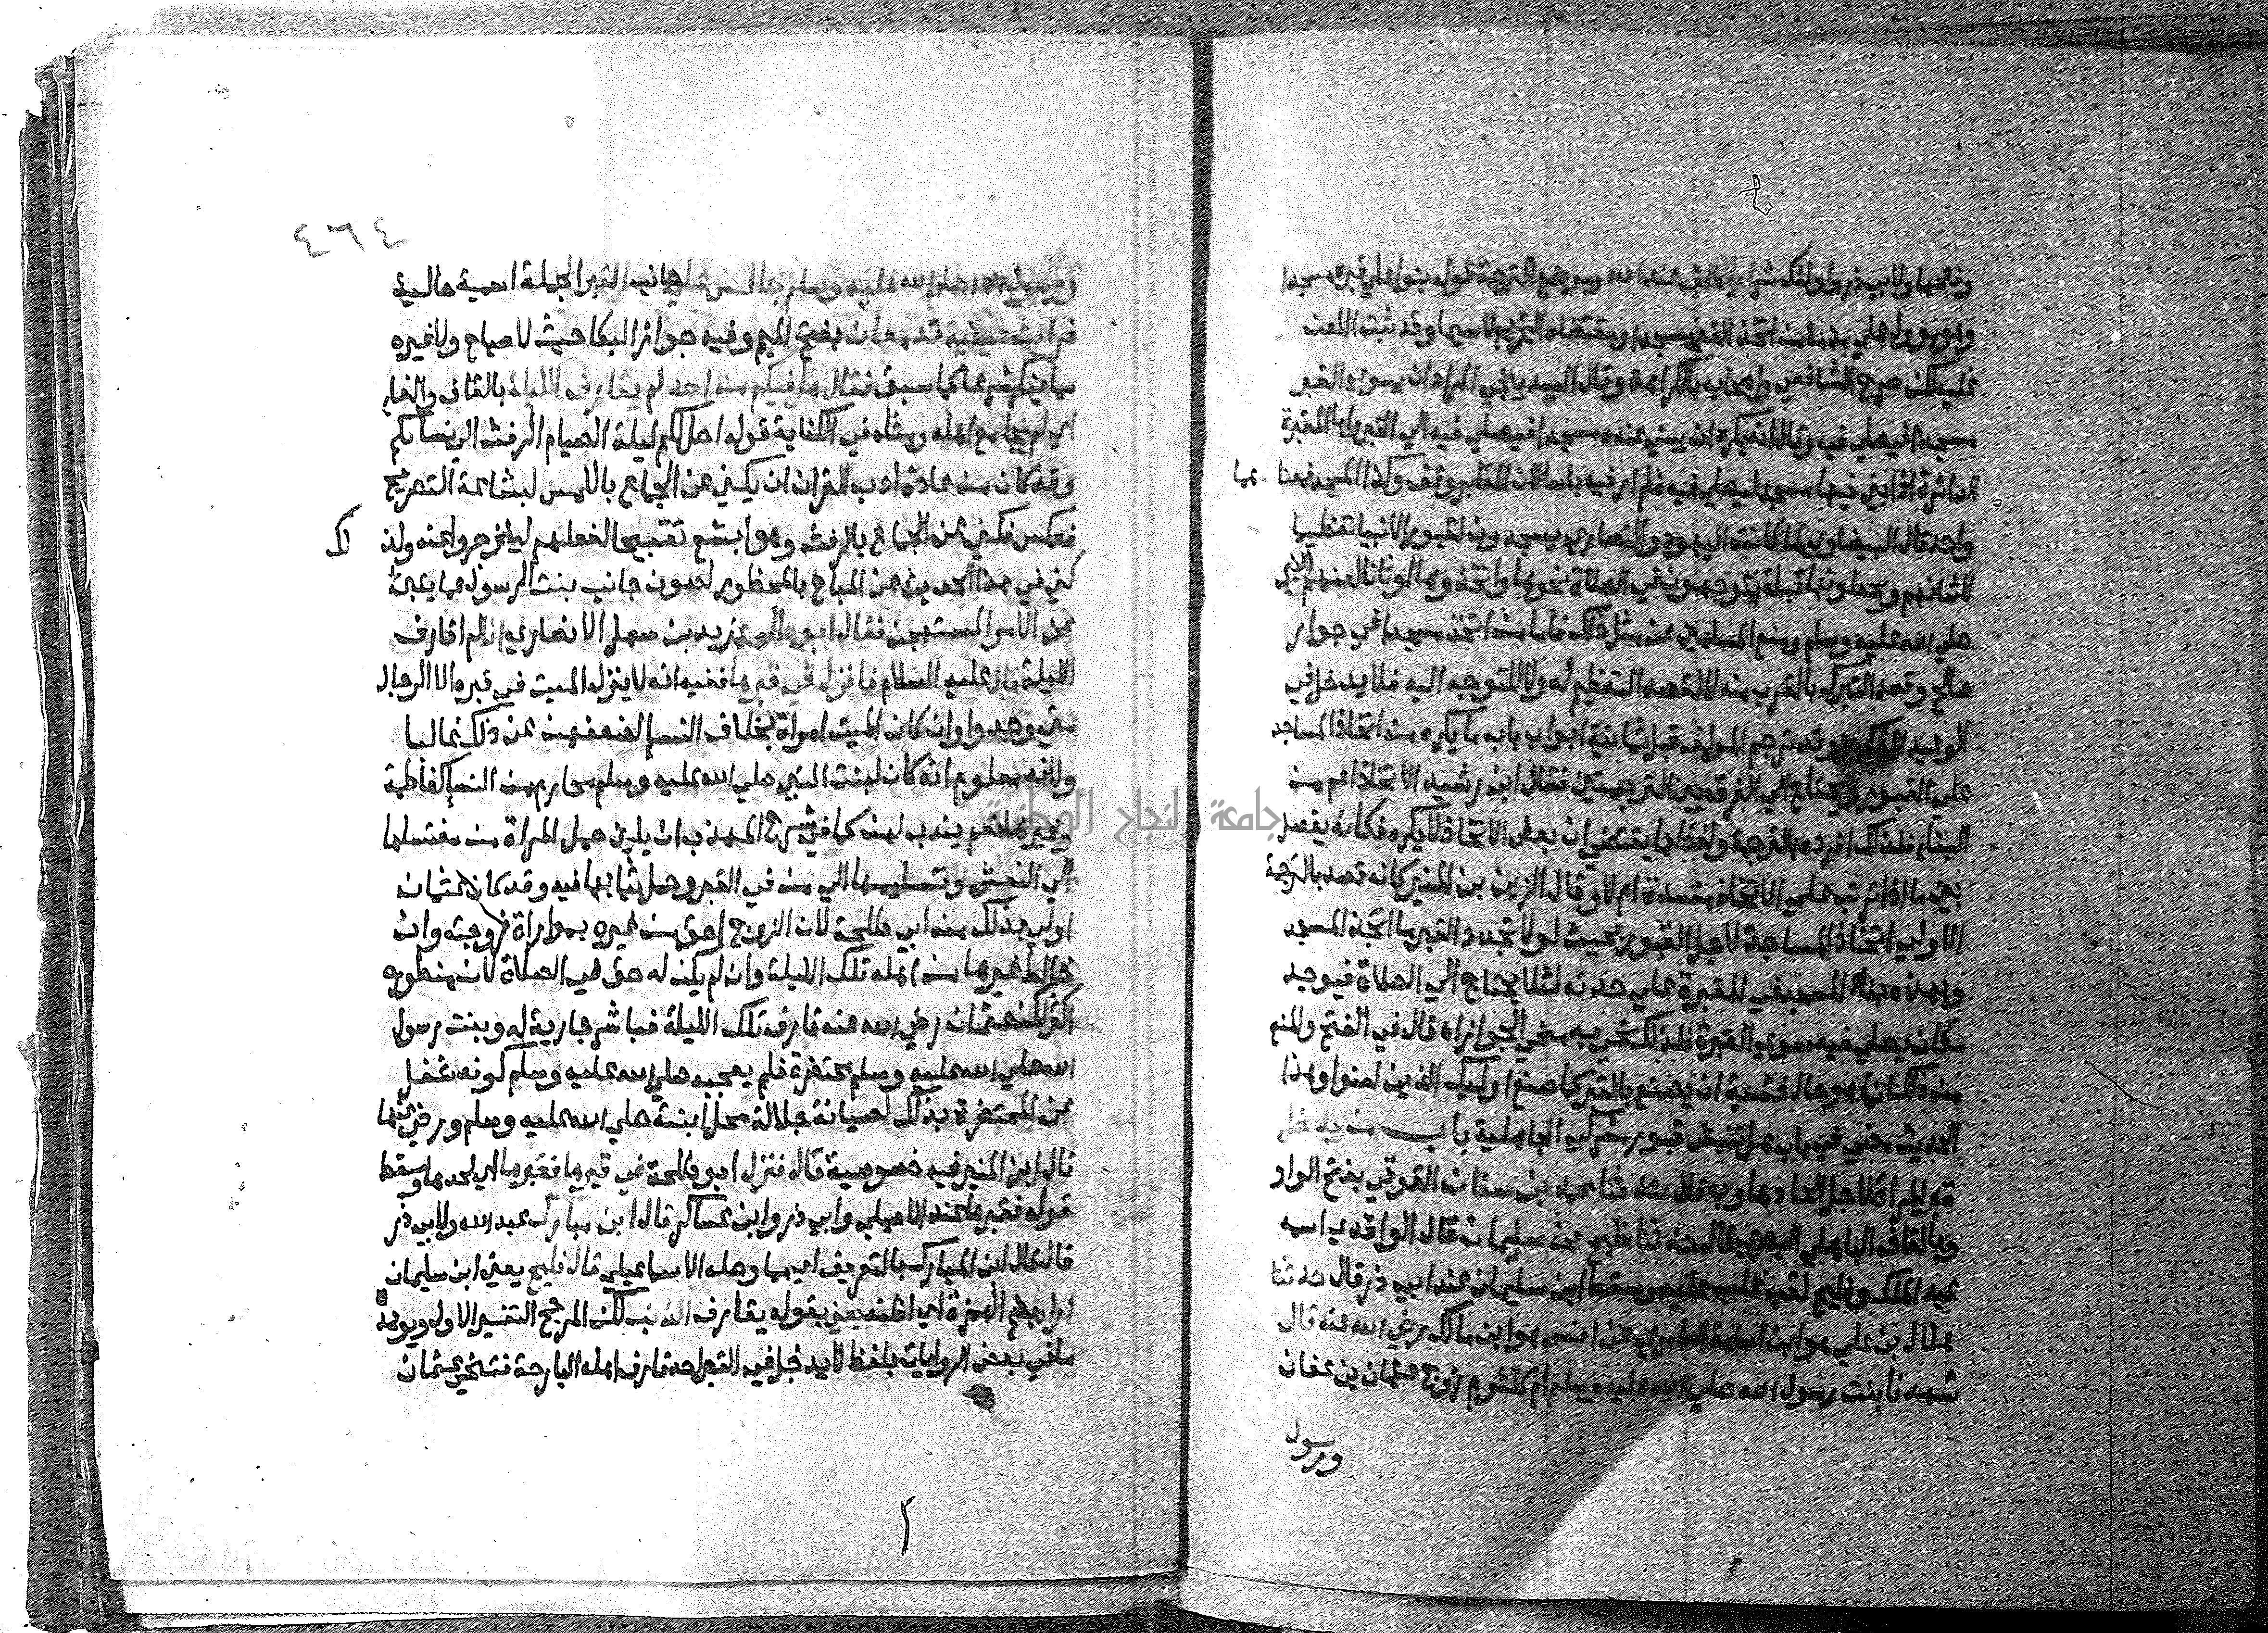 وفتحها ولابي ذر واولئك شرار الخلق عند الله وموضع الترجمة قوله بنوا على قبره مسجدا
وهو مؤول على مذمة من اتخذ القبر مسجدا ومقتضاه التحريم لاسيما وقد ثبت اللعن
عليه لكن صرح الشافعي واصحابه بالكراهة وقال البندنيجي المراد ان يسوي القبر
مسجدا فيصلي فيه وقال انه يكره ان يبني عنده مسجدا فيصلي فيه الي القبر واما المقبرة
الداثرة اذا بني فيها مسجد ليصلي فيه فلم ار فيه باسا لان المقابر وقف وكذا المسجد فمعنا هما
واحد قال البيضاوي لما كانت اليهود والنصاري يسجدون لقبور الانبيا تعظيما
لشانهم ويجعلونها قبلة يتوجهون في الصلاة نحوها واتخذوها اوثانا لعنهم النبي
صلي الله عليه وسلم ومنع المسلمين عن مثل ذلك فاما من اتخذ مسجدا في جوار
صالح وقصد التبرك بالقرب منه لا لقصد التعظيم له ولا للتوجه اليه فلا يدخل في
الوعيد المذكور وقد ترجم المولف قبل ثمانية ابواب باب ما يكره من اتخاذ المساجد
علي القبور ويحتاج الي الفرق بين الترجمتين فقال ابن رشيد الاتخاذ اعم من
البناء فلذلك افرده بالترجمة ولفظها يقتضي ان بعض الاتخاذ لا يكره فكانه يفصل
بين ما اذا ترتب علي الاتخاذ مفسدة ام لا وقال الزين بن المنير كانه قصد بالترجمة
الاولي اتخاذ المساجد لاجل القبور بحيث لولا تجدد القبر ما اتخذ المسجد
وبهذه بناء المسجد في المقبرة علي حدته لئلا يحتاج الي الصلاة فيوجد
مكان يصلي فيه سوي المقبرة فلذلك نحي به منحي الجواز اه قال في الفتح والمنع
من ذلك انما هو حال خشية ان يصنع بالقبر كما صنع اوليك الذين لعنوا وهذا
الحديث مضي في باب هل تنبش قبور مشركي الجاهلية باب من يدخل
قبر المراة لاجل الحادها وبه قال حدثنا محمد بن سنان العوقي بفتح الواو
وبالقاف الباهلي البصري قال حدثنا فليح بن سليمان قال الواقدي اسمه
عبد الملك وفليح لقب غلب عليه وسقط ابن سليمان عند ابي ذر قال حدثنا
هلال بن علي هو ابن اسامة العامري عن انس هو ابن مالك رضي الله عنه قال
شهدنا بنت رسول الله صلي الله عليه وسلم ام كلثوم زوج عثمان بن عفان
ورسول
٤٦٤
ورسول الله صلي الله عليه وسلم جالس علي جانب القبر الجملة اسمية حالية
فرايت عينيه تدمعان بفتح الميم وفيه جواز البكا حيث لا صياح ولا غيره
مما ينكر شرعا كما سبق فقال هل فيكم من احد لم يقارف الليلة بالقاف والفاء
اي لم يجامع اهله ومثله في الكناية قوله احل لكم ليلة الصيام الرفث الي نسائكم
وقد كان من عادة ادب القران ان يكني عن الجماع باللمس لبشاعة التصريح
فعكس فكني عن الجماع بالرفث وهو ابشع تقبيحا لفعلهم لينزجروا عنه ولذ لك
كني في هذا الحديث عن المباح بالمحظور لصون جانب بنت الرسول عما ينبئ
عن الامر المستهجن فقال ابو طلحة زيد بن سهل الانصاري انا لم اقارف
الليلة قال عليه السلام فانزل في قبرها ففيه انه لا ينزل الميت في قبره الا الرجال
متي وجدوا وان كان الميت امراة بخلاف النسا لضعفهن عن ذلك غالبا
ولانه معلوم انه كان لبنت النبي صلي الله عليه وسلم محارم من النسا كفاطمة
وغيرها نعم يندب لهن كما في شرح المهذب ان يلين حمل المراة من مغتسلها
الي النعش وتسليمها الي من في القبر وحل ثيابها فيه وقد كان عثمان
اولي بذلك من ابي طلحة لان الزوج احق من غيره بمواراة زوجته وان
خالط غيرها من اهله تلك الليلة وان لم يكن له حق في الصلاة لان منظوره
اكثر لكن عثمان رضي الله عنه قارف تلك الليلة فباشر جارية له وبنت رسول
الله صلي الله عليه وسلم محتضرة فلم يعجبه صلي الله عليه وسلم كونه شغل
عن المحتضرة بذلك لصيانة جلالة محل ابنته صلي الله عليه وسلم ورضي عنها
قال ابن المنير فيه خصوصية قال فنزل ابو طلحة في قبرها فقبرها اي لحدها وسقط
قوله فقبرها عند الاصيلي وابي ذر وابن عساكر قال ابن مبارك عبد الله ولابي ذر
قال قال ابن المبارك بالتعريف اي مما وصله الاسماعيلي قال فليح يعني ابن سليمان
اراه بضم الهمزة اي اظنه يعني بقوله يقارف الذنب لكن المرجح التفسير الاول ويويده
ما في بعض الروايات بلفظ لا يدخل القبر احد قارف اهله البارحة فتنحي عثمان
جامعة النجاح الوطنية